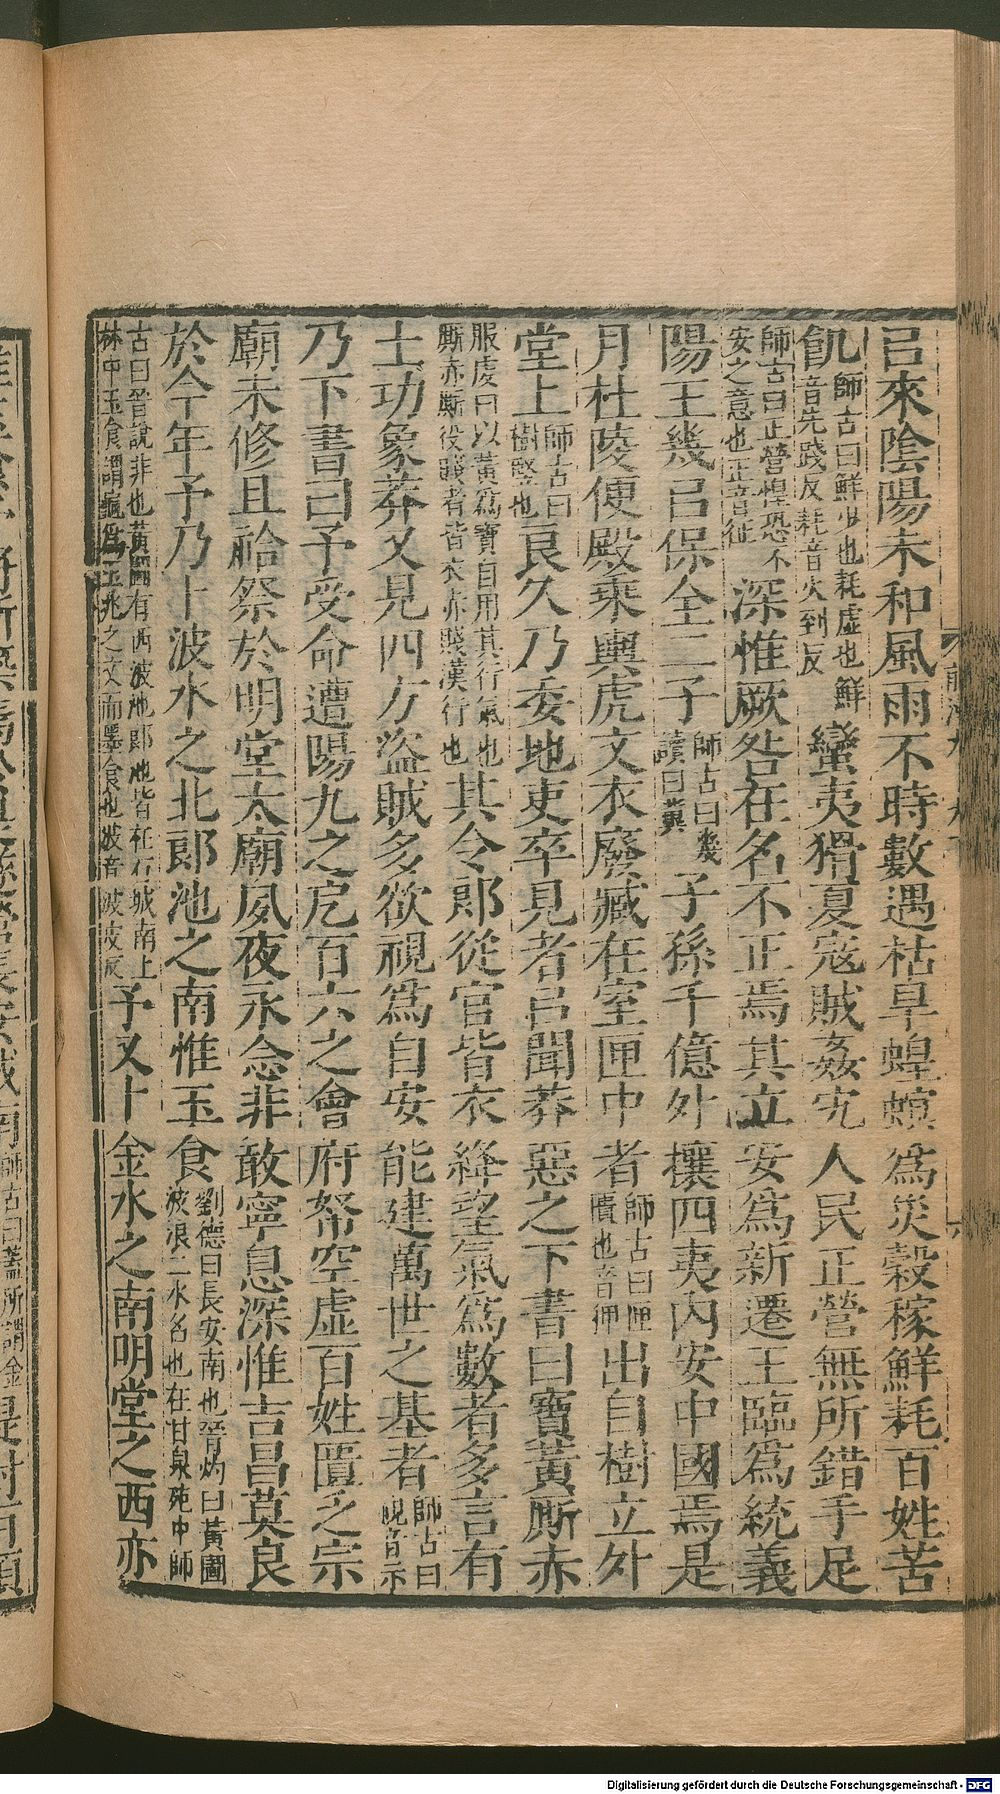 㠯來陰陽未和風雨不時數遇枯旱蝗螟為災穀稼鮮耗百姓苦
飢師古曰鮮少也耗虛也鮮音先踐反耗音火到反蠻夷猾夏寇賊姦宄人民正營無所錯手足
師古曰正營惶恐不安之意也正音征深惟厥咎在名不正焉其立安為新遷王臨為統義
陽王幾㠯保全二子師古曰幾讀曰冀子孫千億外攘四夷內安中國焉是
月杜陵便殿乘輿虎文衣廢臧在室匣中者師古曰匣匱也音狎出自樹立外
堂上師古曰樹豎也良久乃委地吏卒見者㠯聞莽惡之下書曰寶黃廝赤
服虔曰以黃為寶自用其行氣也廝赤廝役賤者皆衣赤賤漢行也其令郎從官皆衣絳望氣為數者多言有
土功象莽又見四方盜賊多欲視為自安能建萬世之基者師古曰視音示
乃下書曰予受命遭陽九之戹百六之會府帑空虛百姓匱乏宗
廟未修且祫祭於明堂太廟夙夜永念非敢寧息深惟吉昌莫良
於今年予乃卜波水之北郎池之南惟玉食劉德曰長安南也晉灼曰黃圖波浪二水名也在甘泉苑中師
古曰晉說非也黃圖有西波池郎池皆在石城南上林中玉食謂龜為玉兆之文而墨食也波音波皮反予又卜金水之南明堂之西亦
Digitalisierung gefördert durch die Deutsche Forschungsgemeinschaft - DFG